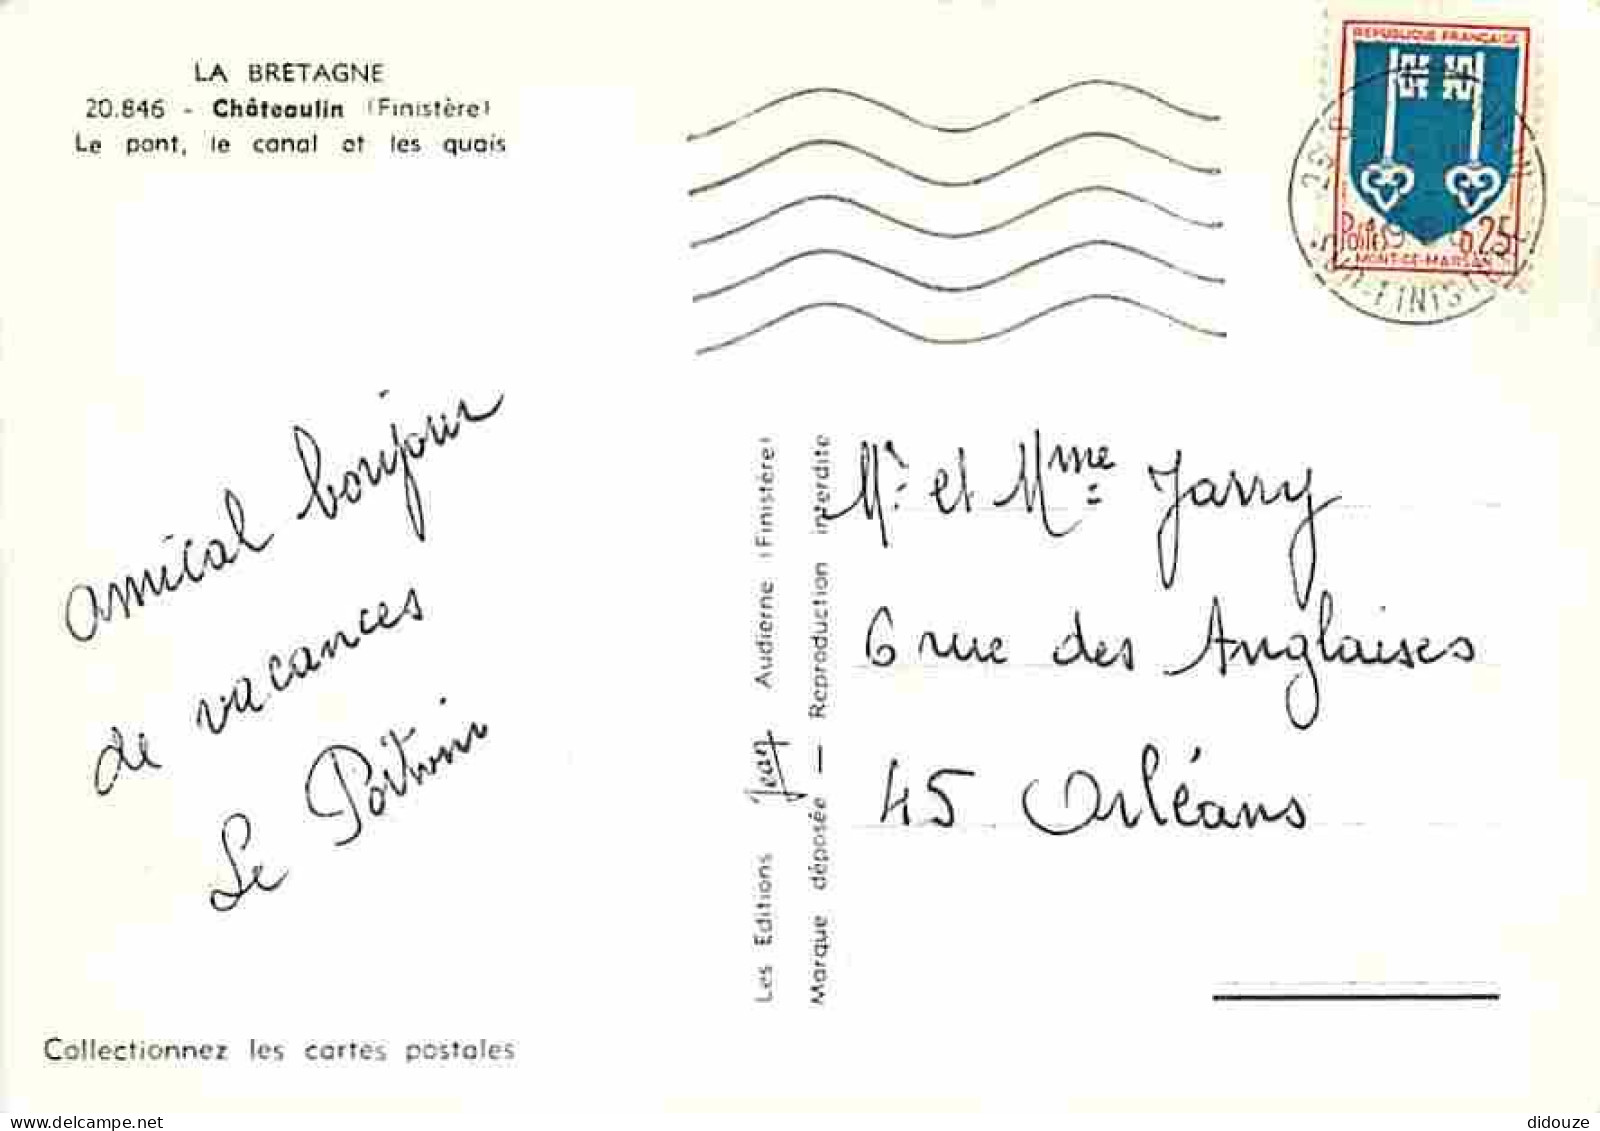 LA BRETAGNE
20.846 - Châteaulin (Finistère)
Le pont, le canal et les quais
REPUBLIQUE FRANÇAISE
POSTES 0,25
MONT-DE-MARSAN
amical bonjour
de vacances
Le
Mr. et Mme Jarry
6 rue des Anglaises
45 Orléans
Les Editions Jean Audierne (Finistère)
Marque déposée — Reproduction interdite
Collectionnez les cartes postales
didouze@delcampe.net